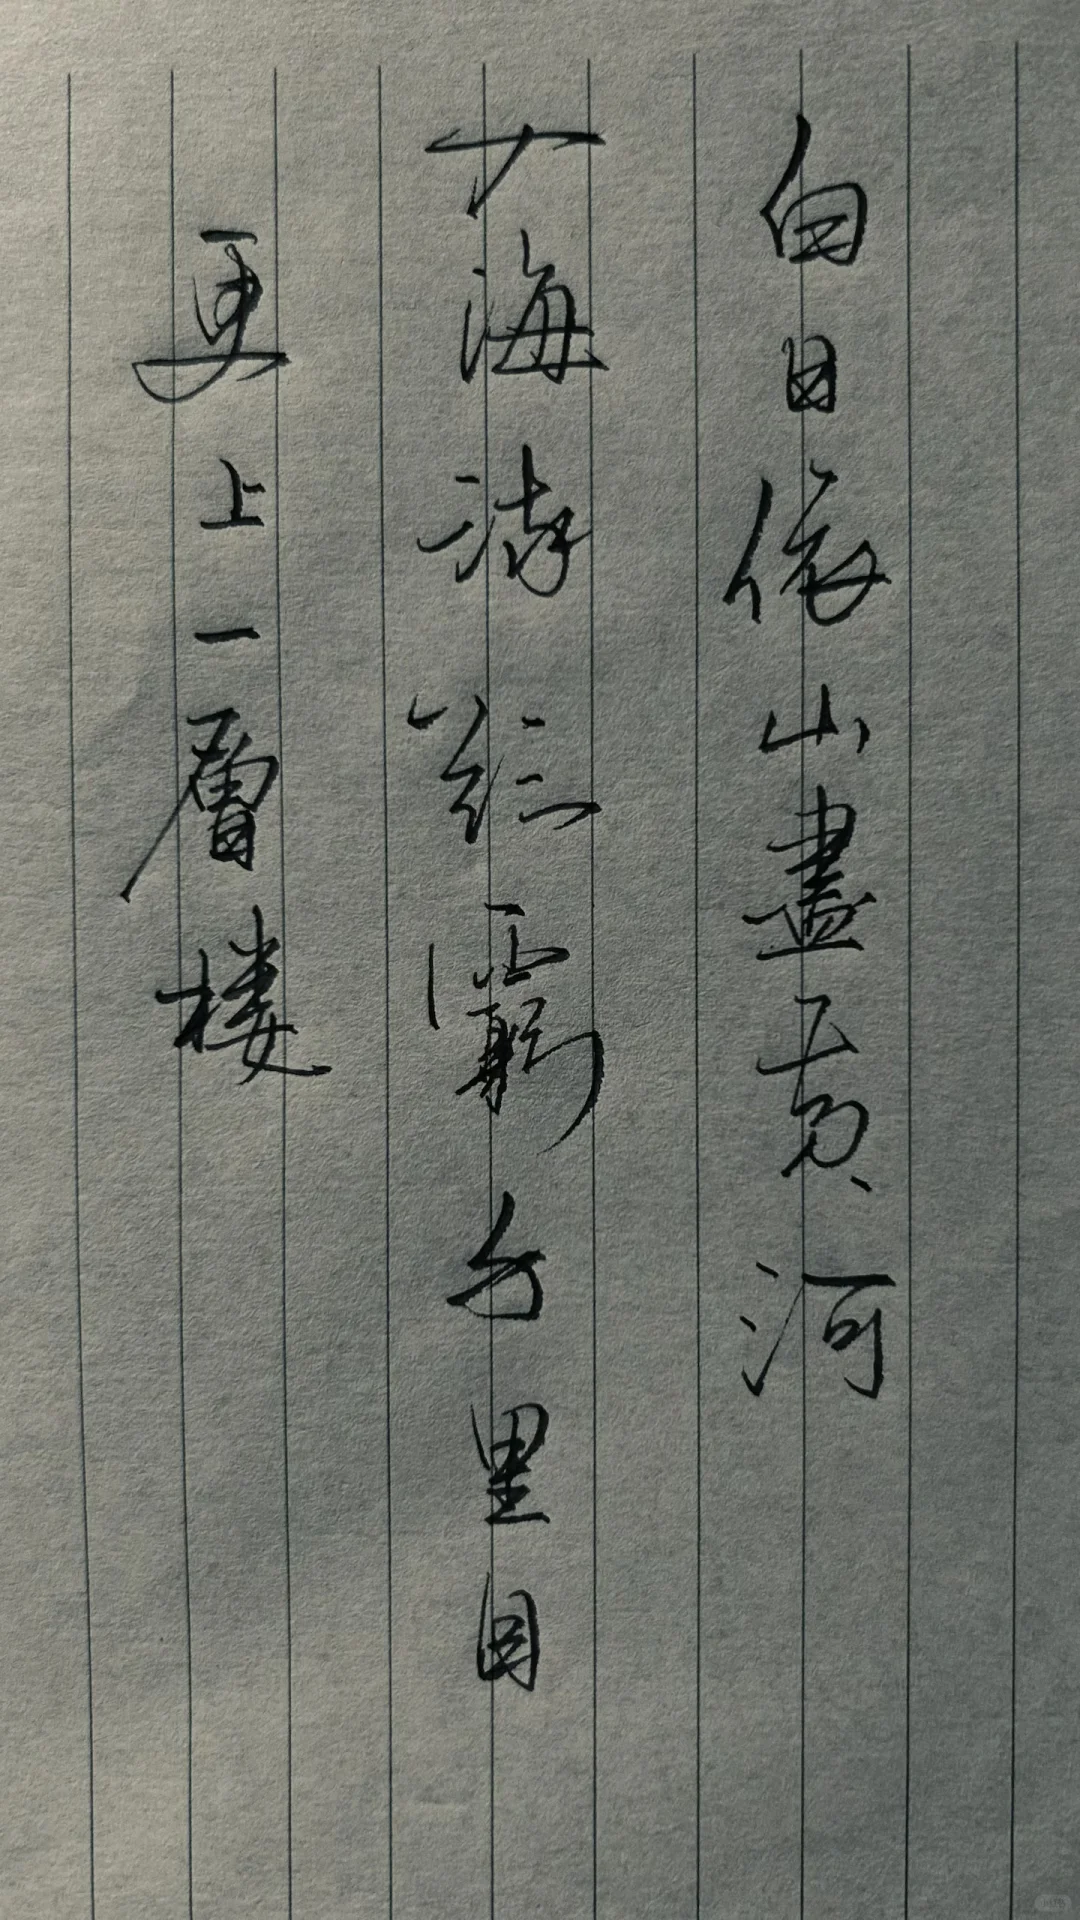 白日依山盡黃河
入海流欲窮千里目
更上一層楼